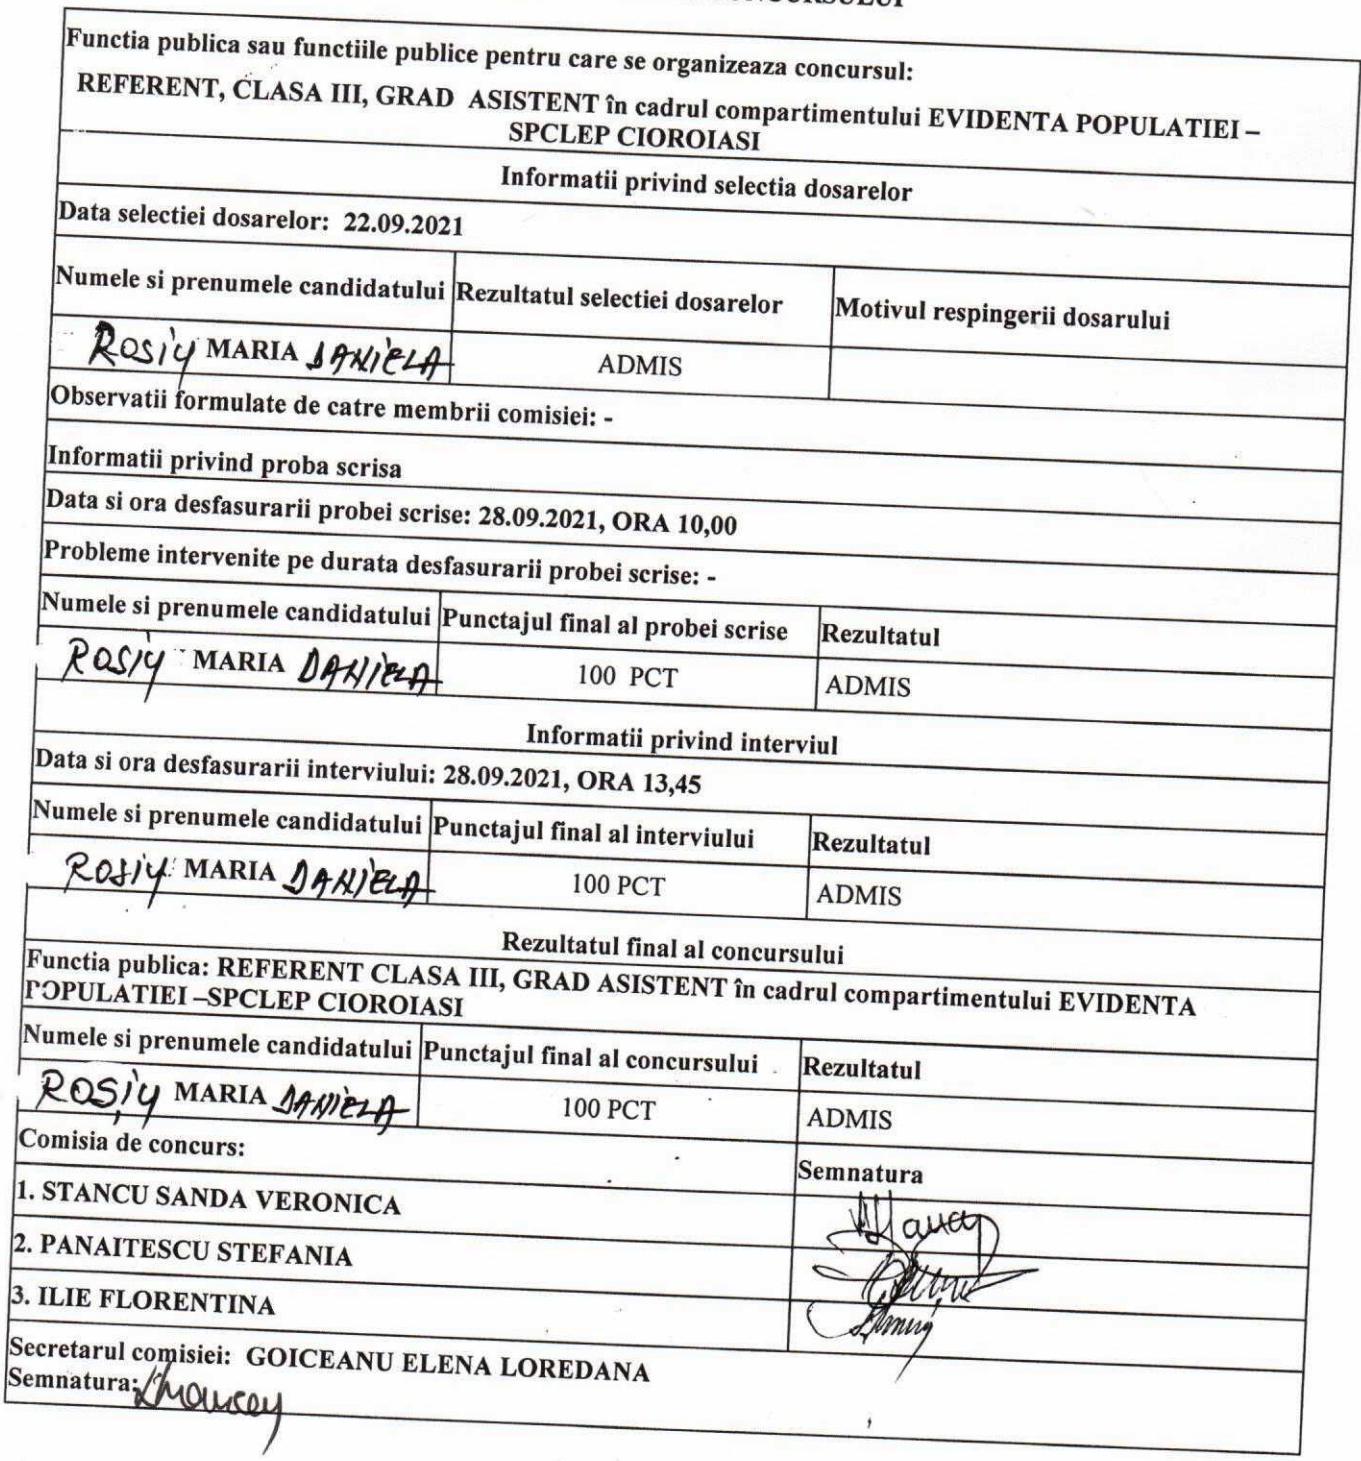 Functia publica sau functiile publice pentru care se organizeaza concursul:
REFERENT, CLASA III, GRAD ASISTENT în cadrul compartimentului EVIDENTA POPULATIEI –
SPCLEP CIOROIASI
Informatii privind selectia dosarelor
Data selectiei dosarelor: 22.09.2021
Numele si prenumele candidatului Rezultatul selectiei dosarelor Motivul respingerii dosarului
MARIA DANIELA ADMIS
Observatii formulate de catre membrii comisiei: -
Informatii privind proba scrisa
Data si ora desfasurarii probei scrise: 28.09.2021, ORA 10,00
Probleme intervenite pe durata desfasurarii probei scrise: -
Numele si prenumele candidatului Punctajul final al probei scrise Rezultatul
MARIA DANIELA 100 PCT ADMIS
Informatii privind interviul
Data si ora desfasurarii interviului: 28.09.2021, ORA 13,45
Numele si prenumele candidatului Punctajul final al interviului Rezultatul
MARIA DANIELA 100 PCT ADMIS
Rezultatul final al concursului
Functia publica: REFERENT CLASA III, GRAD ASISTENT în cadrul compartimentului EVIDENTA
POPULATIEI –SPCLEP CIOROIASI
Numele si prenumele candidatului Punctajul final al concursului Rezultatul
MARIA DANIELA 100 PCT ADMIS
Comisia de concurs: Semnatura
1. STANCU SANDA VERONICA
2. PANAITESCU STEFANIA
3. ILIE FLORENTINA
Secretarul comisiei: GOICEANU ELENA LOREDANA
Semnatura: